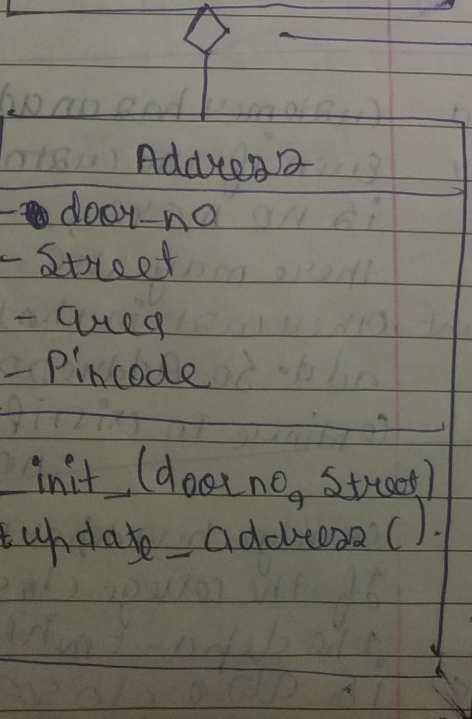 Address
- door-no
- Street
- area
- Pincode
_init_(doorno, Street)
+update_address().